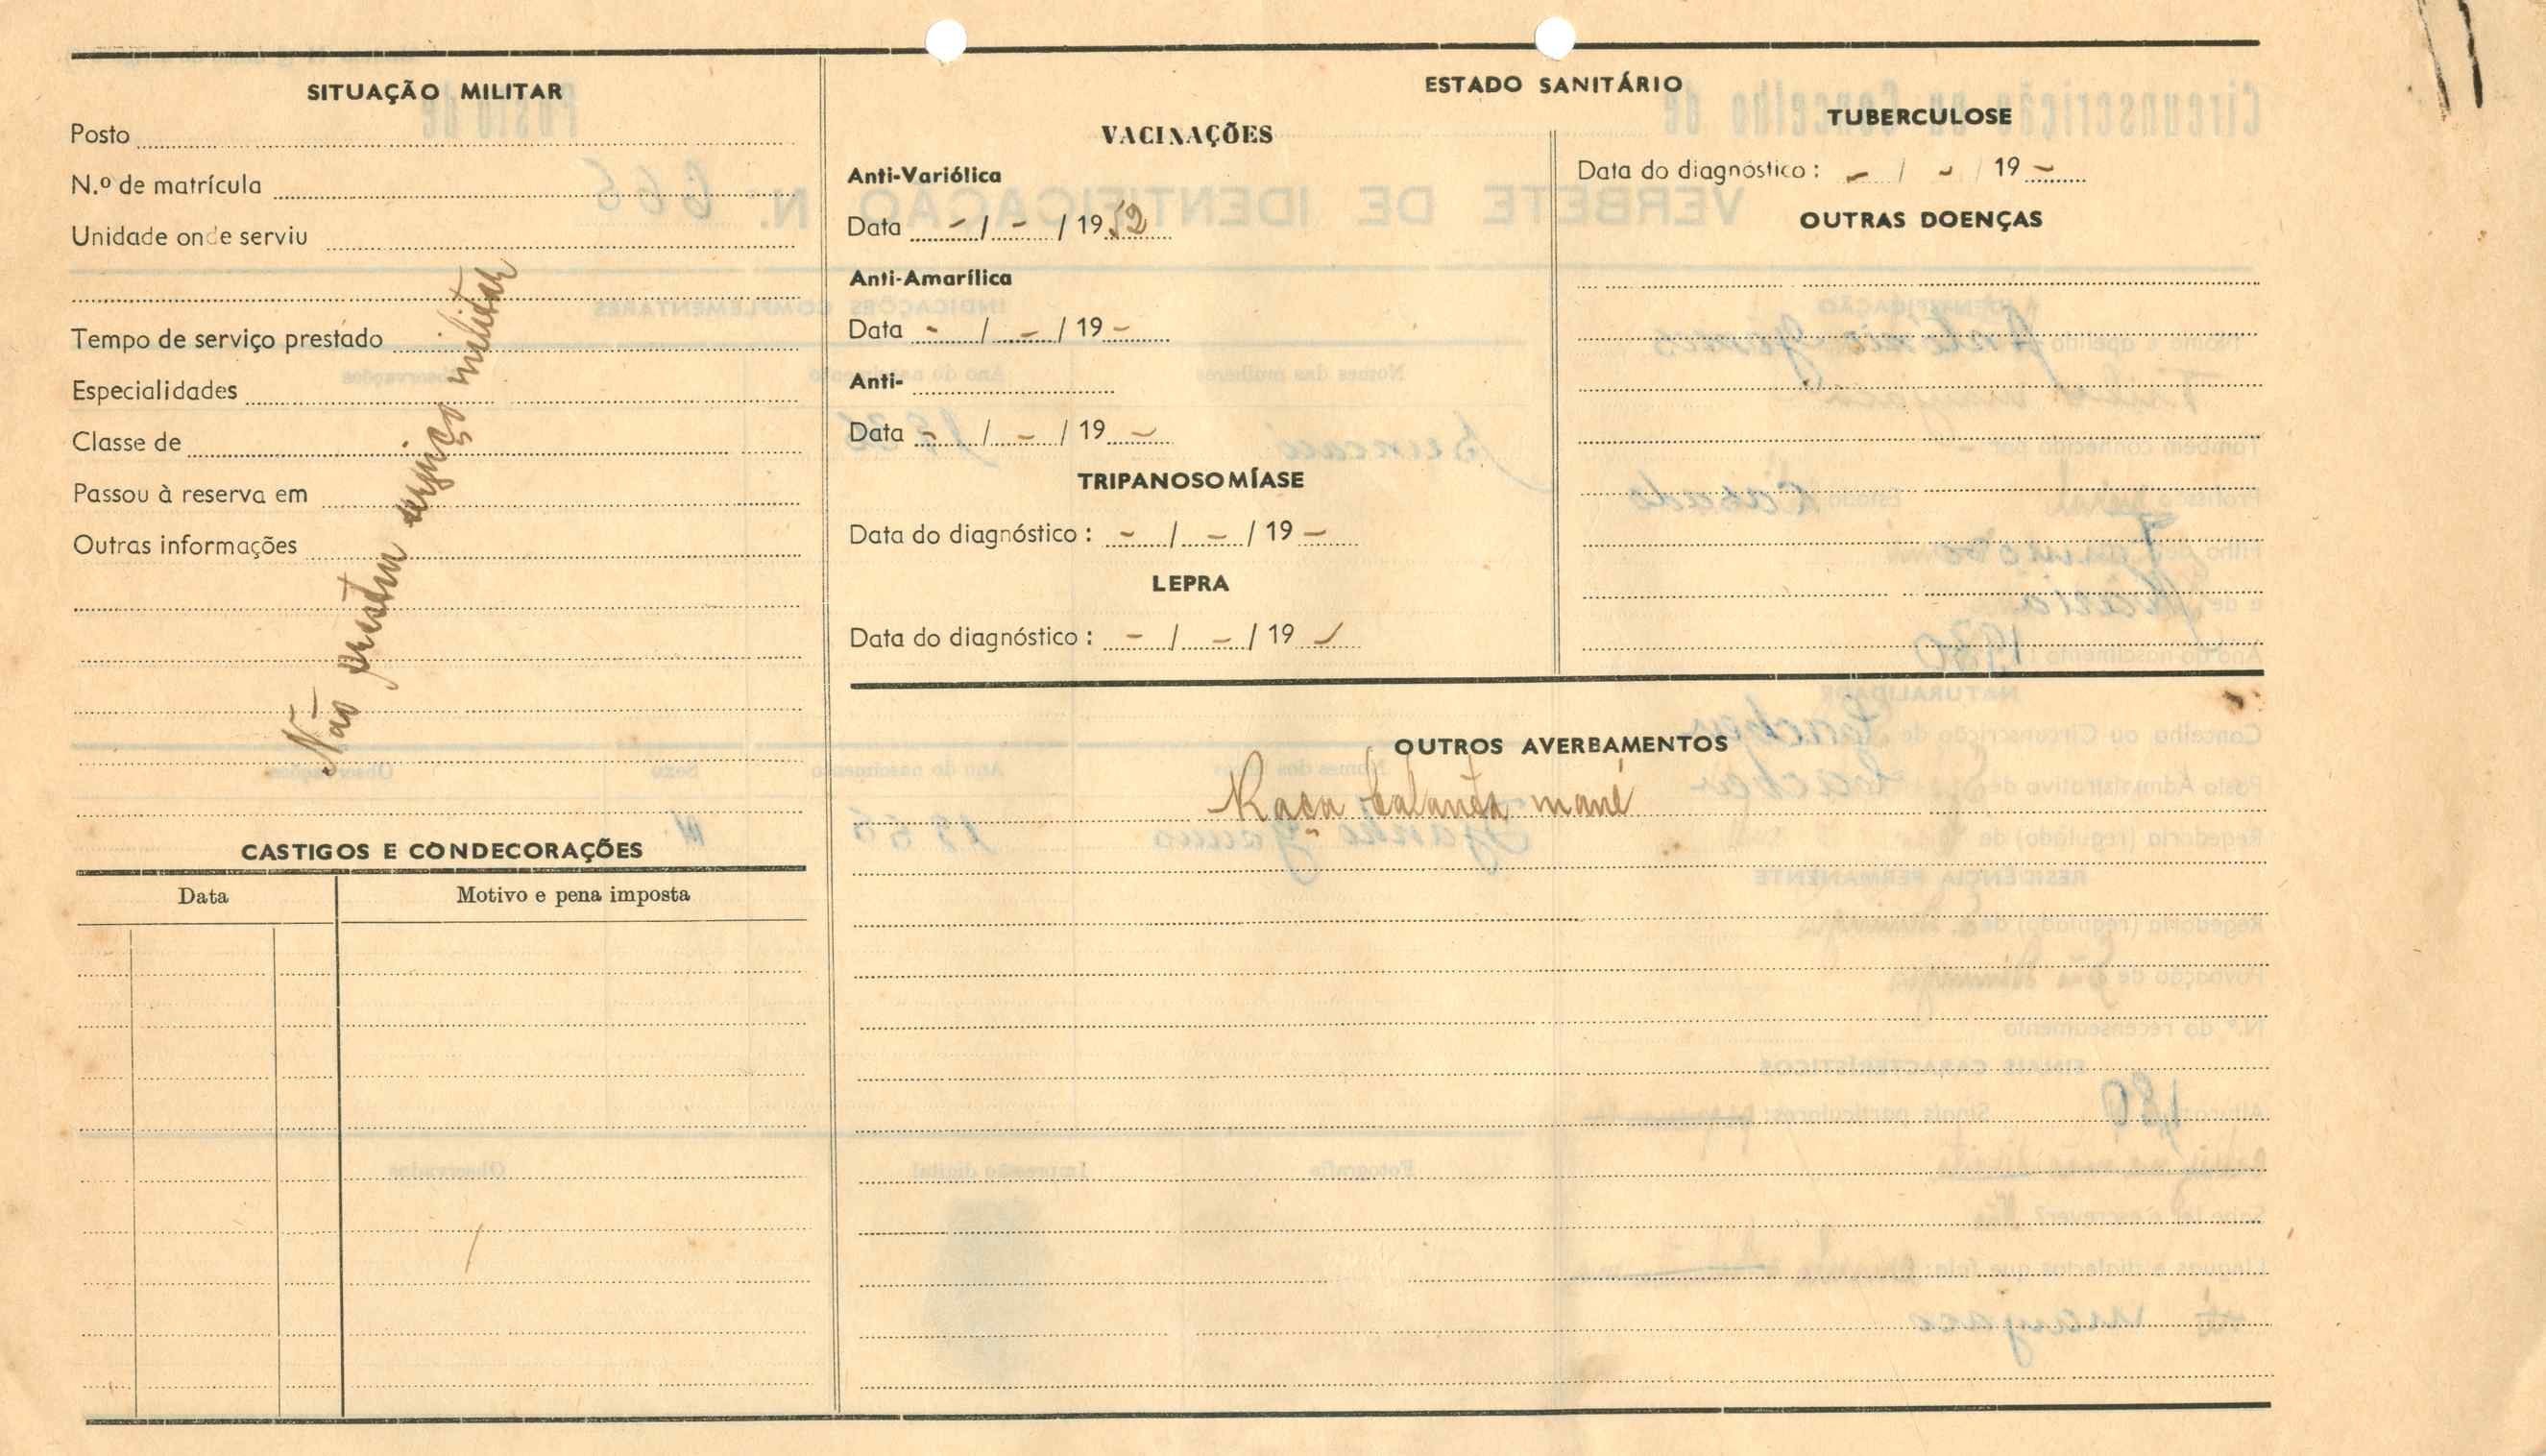 SITUAÇÃO MILITAR
Posto
N.º de matrícula
Unidade onde serviu
Tempo de serviço prestado
Especialidades
Classe de
Passou à reserva em
Outras informações
Não prestou serviço militar
CASTIGOS E CONDECORAÇÕES
Data Motivo e pena imposta
ESTADO SANITÁRIO
VACINAÇÕES
Anti-Variólica
Data - / - / 1952
Anti-Amarílica
Data - / - / 19 -
Anti-
Data - / - / 19 -
TRIPANOSOMÍASE
Data do diagnóstico : - / - / 19 -
LEPRA
Data do diagnóstico : - / - / 19
TUBERCULOSE
Data do diagnóstico : - / - / 19 -
OUTRAS DOENÇAS
OUTROS AVERBAMENTOS
Raça balanta mané